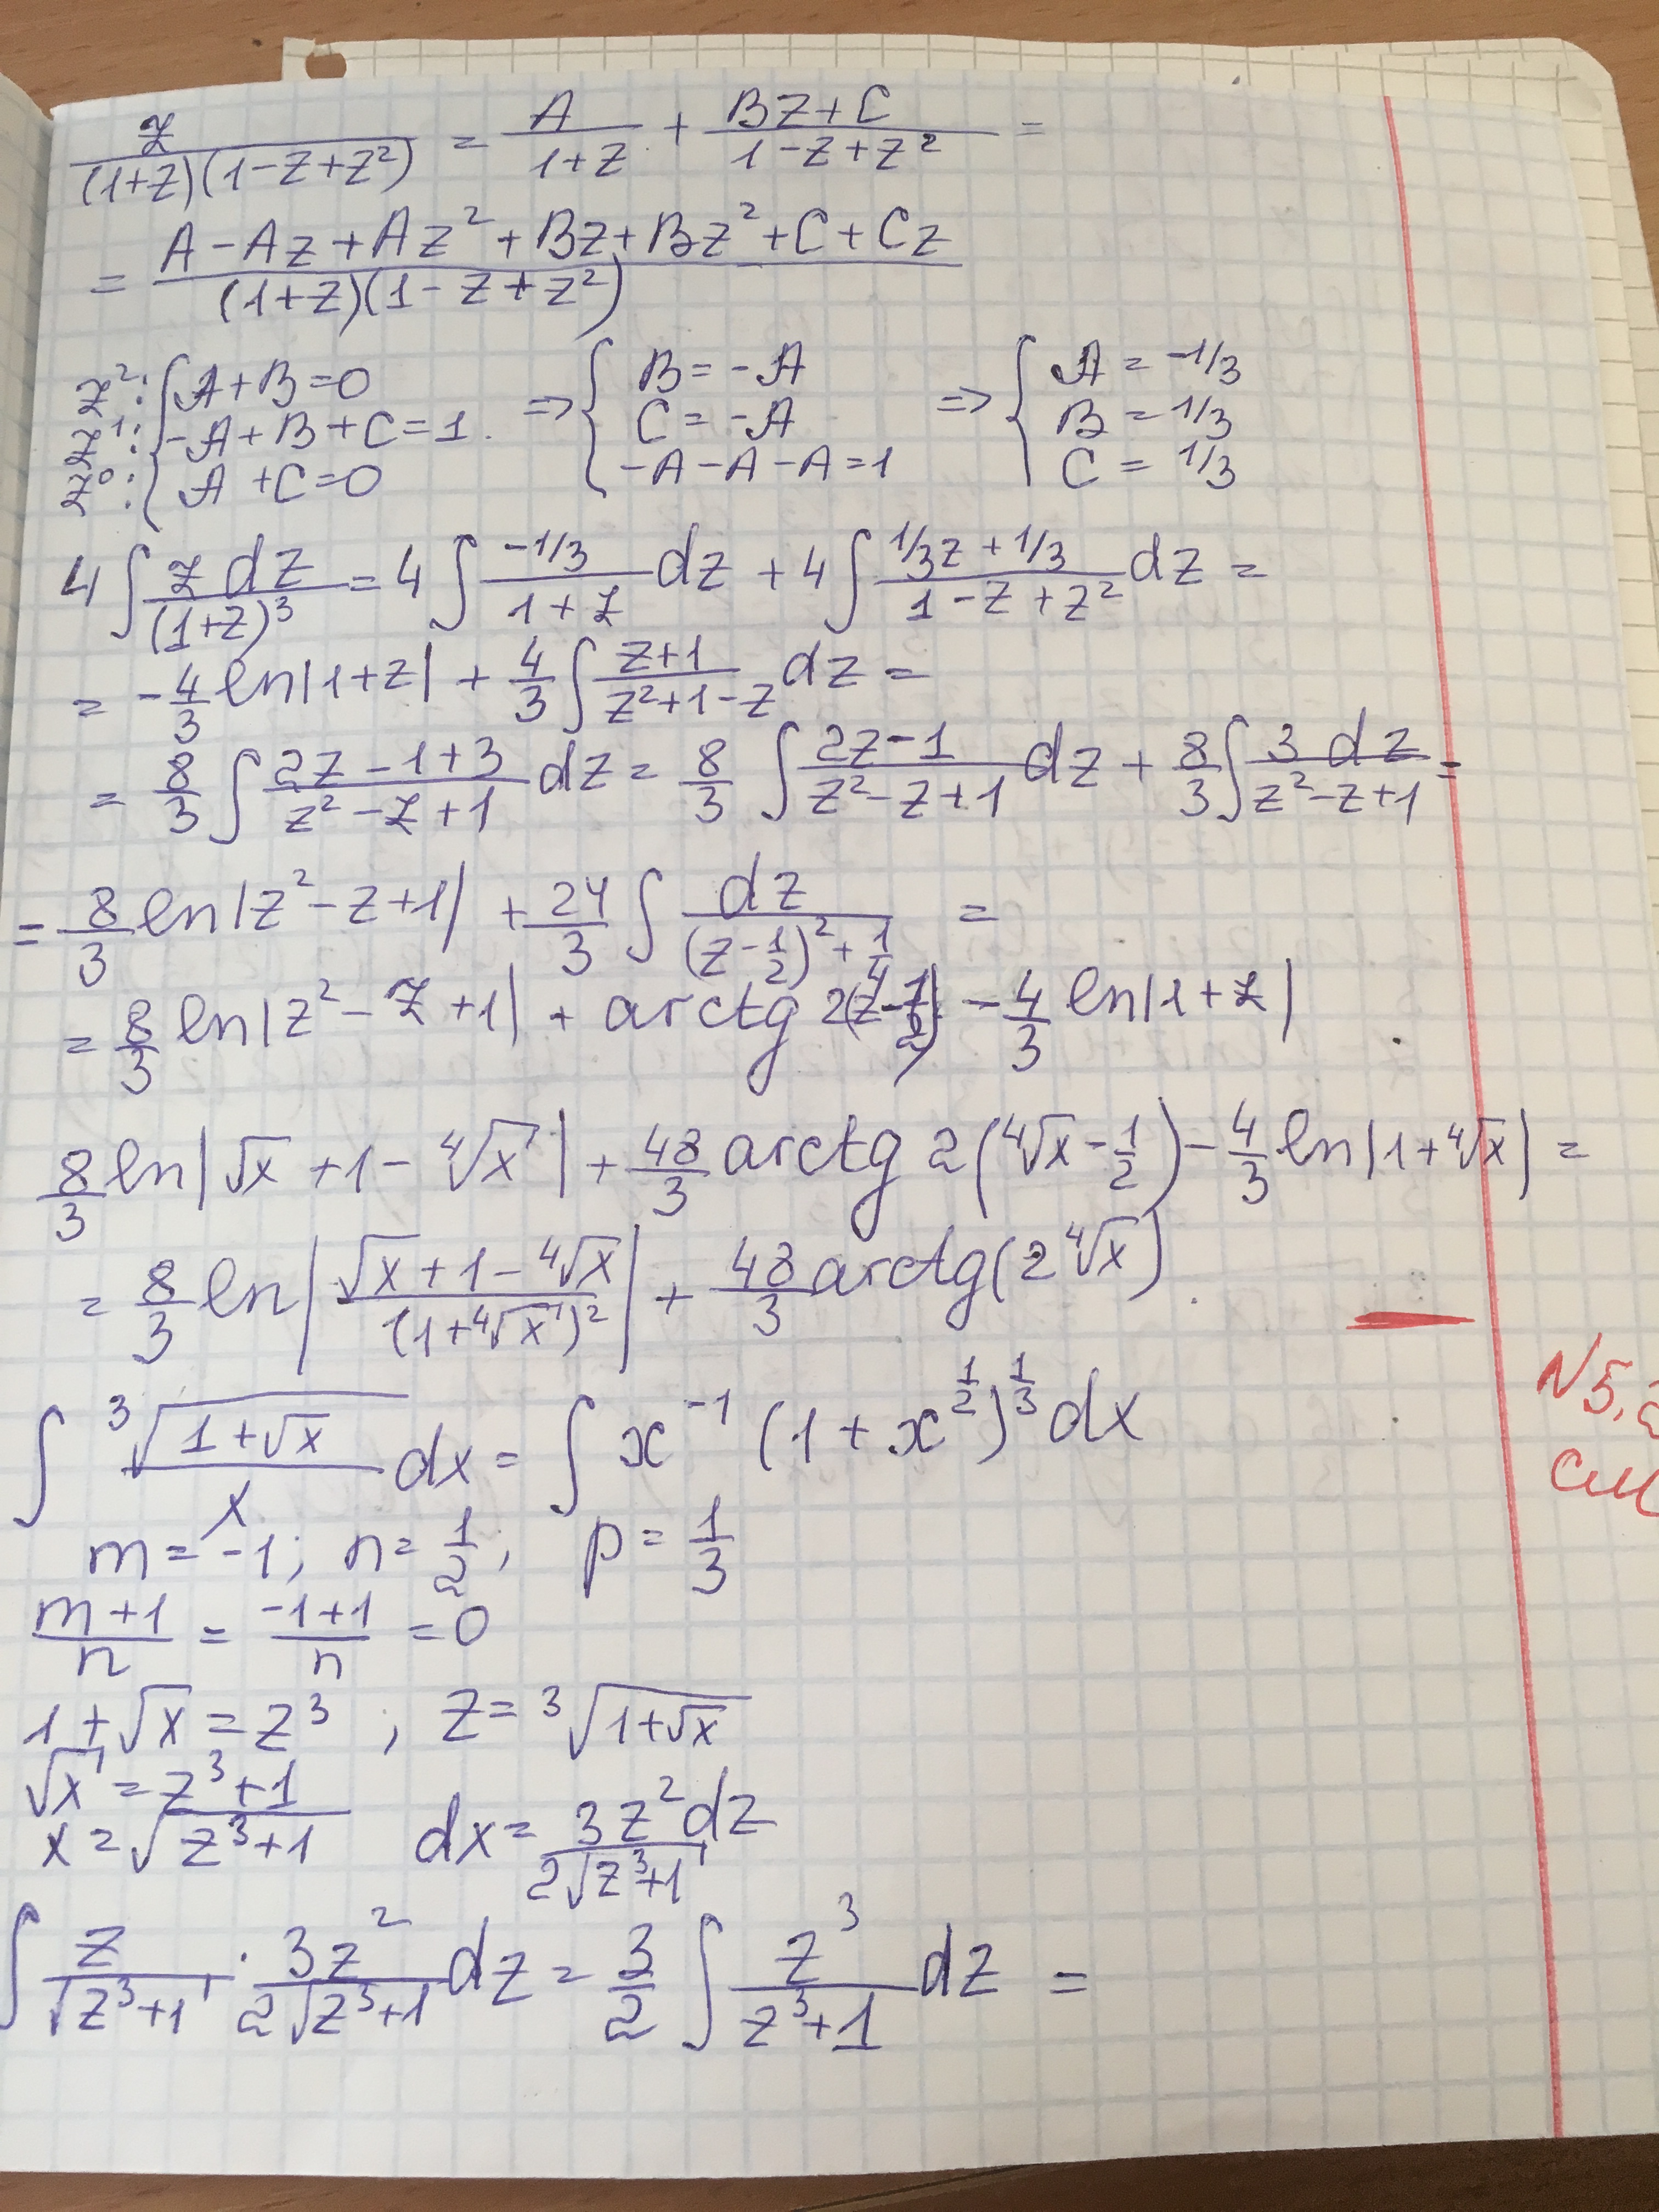 z/((1+z)(1-z+z²)) = A/(1+z) + (Bz+C)/(1-z+z²) =
= (A-Az+Az²+Bz+Bz²+C+Cz)/((1+z)(1-z+z²))
z²: { A+B=0 => { B=-A => { A=-1/3
z¹: { -A+B+C=1. C=-A B=1/3
z⁰: { A+C=0 -A-A-A=1 C=1/3
4∫ z dz/(1+z)³ = 4∫ (-1/3)/(1+z) dz + 4∫ (1/3z+1/3)/(1-z+z²) dz =
= -4/3 ln|1+z| + 4/3 ∫ (z+1)/(z²+1-z) dz =
= 8/3 ∫ (2z-1+3)/(z²-z+1) dz = 8/3 ∫ (2z-1)/(z²-z+1) dz + 8/3 ∫ 3 dz/(z²-z+1) =
= 8/3 ln|z²-z+1| + 24/3 ∫ dz/((z-1/2)²+1/4) =
= 8/3 ln|z²-z+1| + arctg 2(z-1/2) - 4/3 ln|1+z|
8/3 ln|√x+1-⁴√x| + 48/3 arctg 2(⁴√x-1/2) - 4/3 ln|1+⁴√x| =
= 8/3 ln|(√x+1-⁴√x)/(1+⁴√x)²| + 48/3 arctg(2⁴√x).
N5,
∫ ³√(1+√x)/x dx = ∫ x⁻¹ (1+x^(1/2))^(1/3) dx
m=-1; n=1/2; p=1/3
(m+1)/n = (-1+1)/n = 0
1+√x=z³ ; z=³√(1+√x)
√x=z³+1
x=√(z³+1) dx=3z²dz/(2√(z³+1))
∫ z/√(z³+1) · 3z²/(2√(z³+1)) dz = 3/2 ∫ z³/(z³+1) dz =